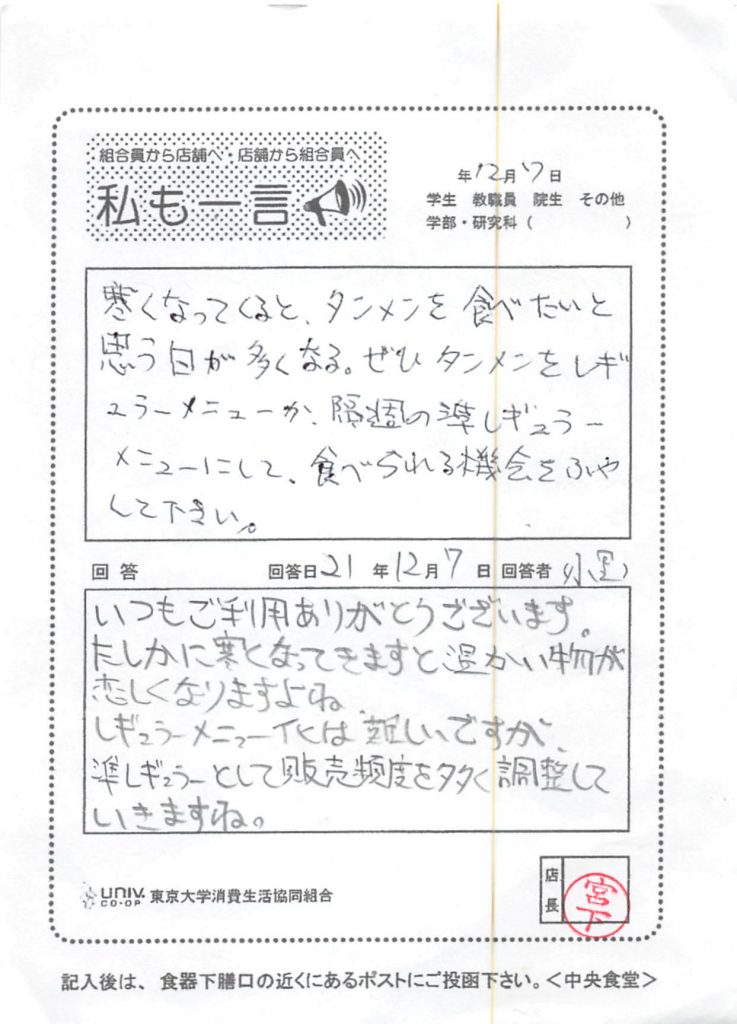 組合員から店舗へ・店舗から組合員へ
私も一言
年12月17日
学生 教職員 院生 その他
学部・研究科（ ）
寒くなってくると、タンメンを食べたいと
思う日が多くなる。ぜひタンメンをレギ
ュラーメニューか、隔週の準レギュラー
メニューにして、食べられる機会をふや
して下さい。
回答 回答日21年12月7日 回答者（小黒）
いつもご利用ありがとうございます。
たしかに寒くなってきますと温かい物が
恋しくなりますよね。
レギュラーメニュー化は難しいですが、
準レギュラーとして販売頻度を多く調整して
いきますね。
UNIV. CO-OP 東京大学消費生活協同組合
店長 宮下
記入後は、食器下膳口の近くにあるポストにご投函下さい。＜中央食堂＞